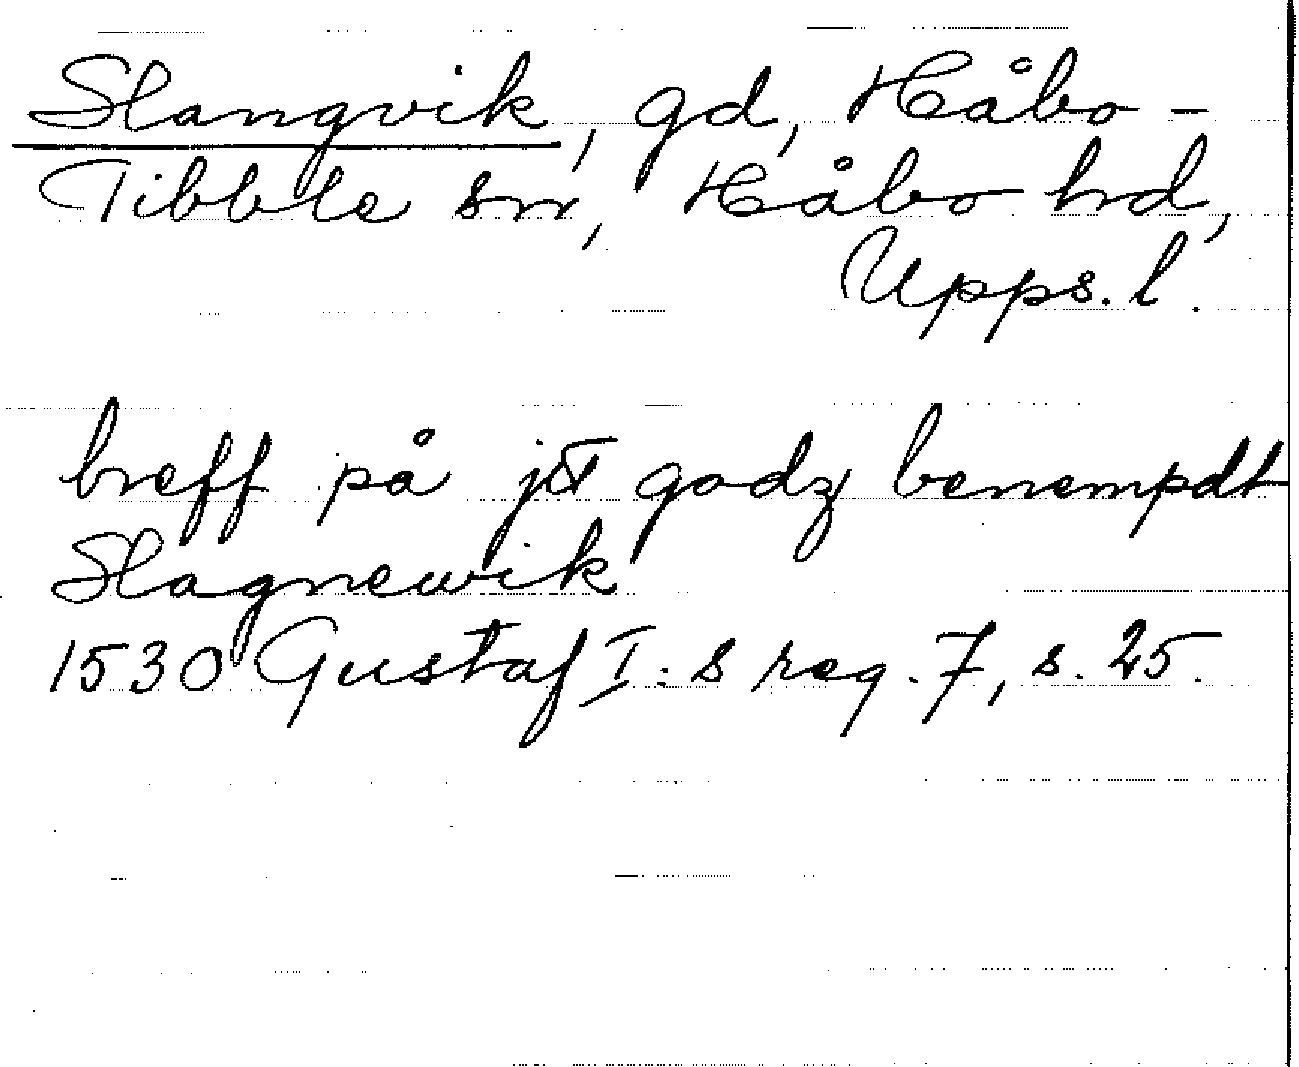 Slangvik, gd, Håbo-
Tibble sn, Håbo hd,
Upps. l.
breff på jtt godz benempdt
Slagnewik
1530 Gustaf I:s reg. 7, s. 25.